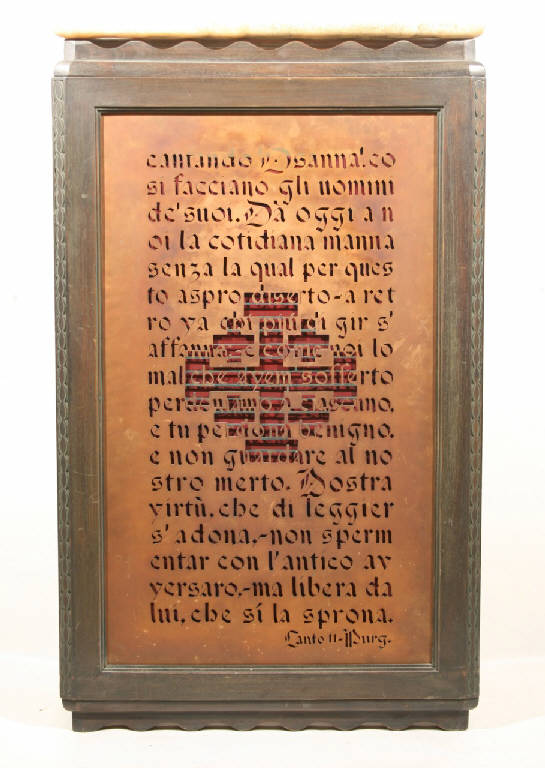 cantando Osanna! co
si facciano gli uomini
de' suoi. Da' oggi a n
oi la cotidiana manna
senza la qual per ques
to aspro diserto-a ret
ro va chi più di gir s'
affanna. e come noi lo
mal che avem sofferto
perdoniamo a ciascuno,
e tu perdona benigno,
e non guardare al no
stro merto. Nostra
virtù, che di leggier
s'adona,-non sperm
entar con l'antico av
versaro,-ma libera da
lui, che sí la sprona.
Canto 11-Purg.